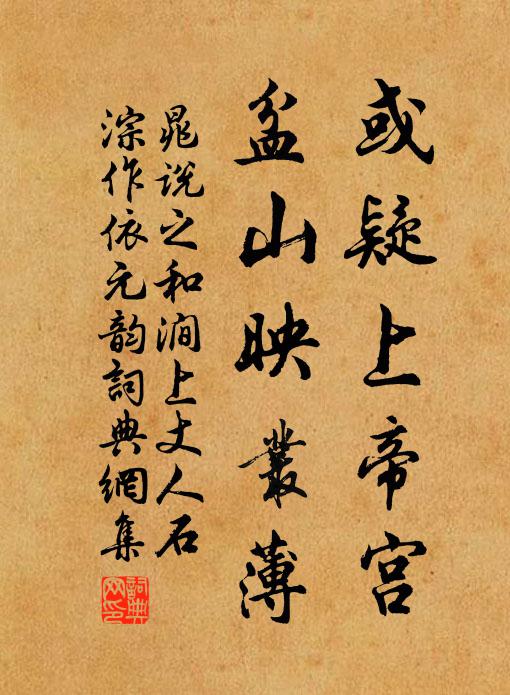 或疑上帝宫
盆山映叢薄
晁説之和澗上丈人石
淙作依元韵詞典網集
詞典網印